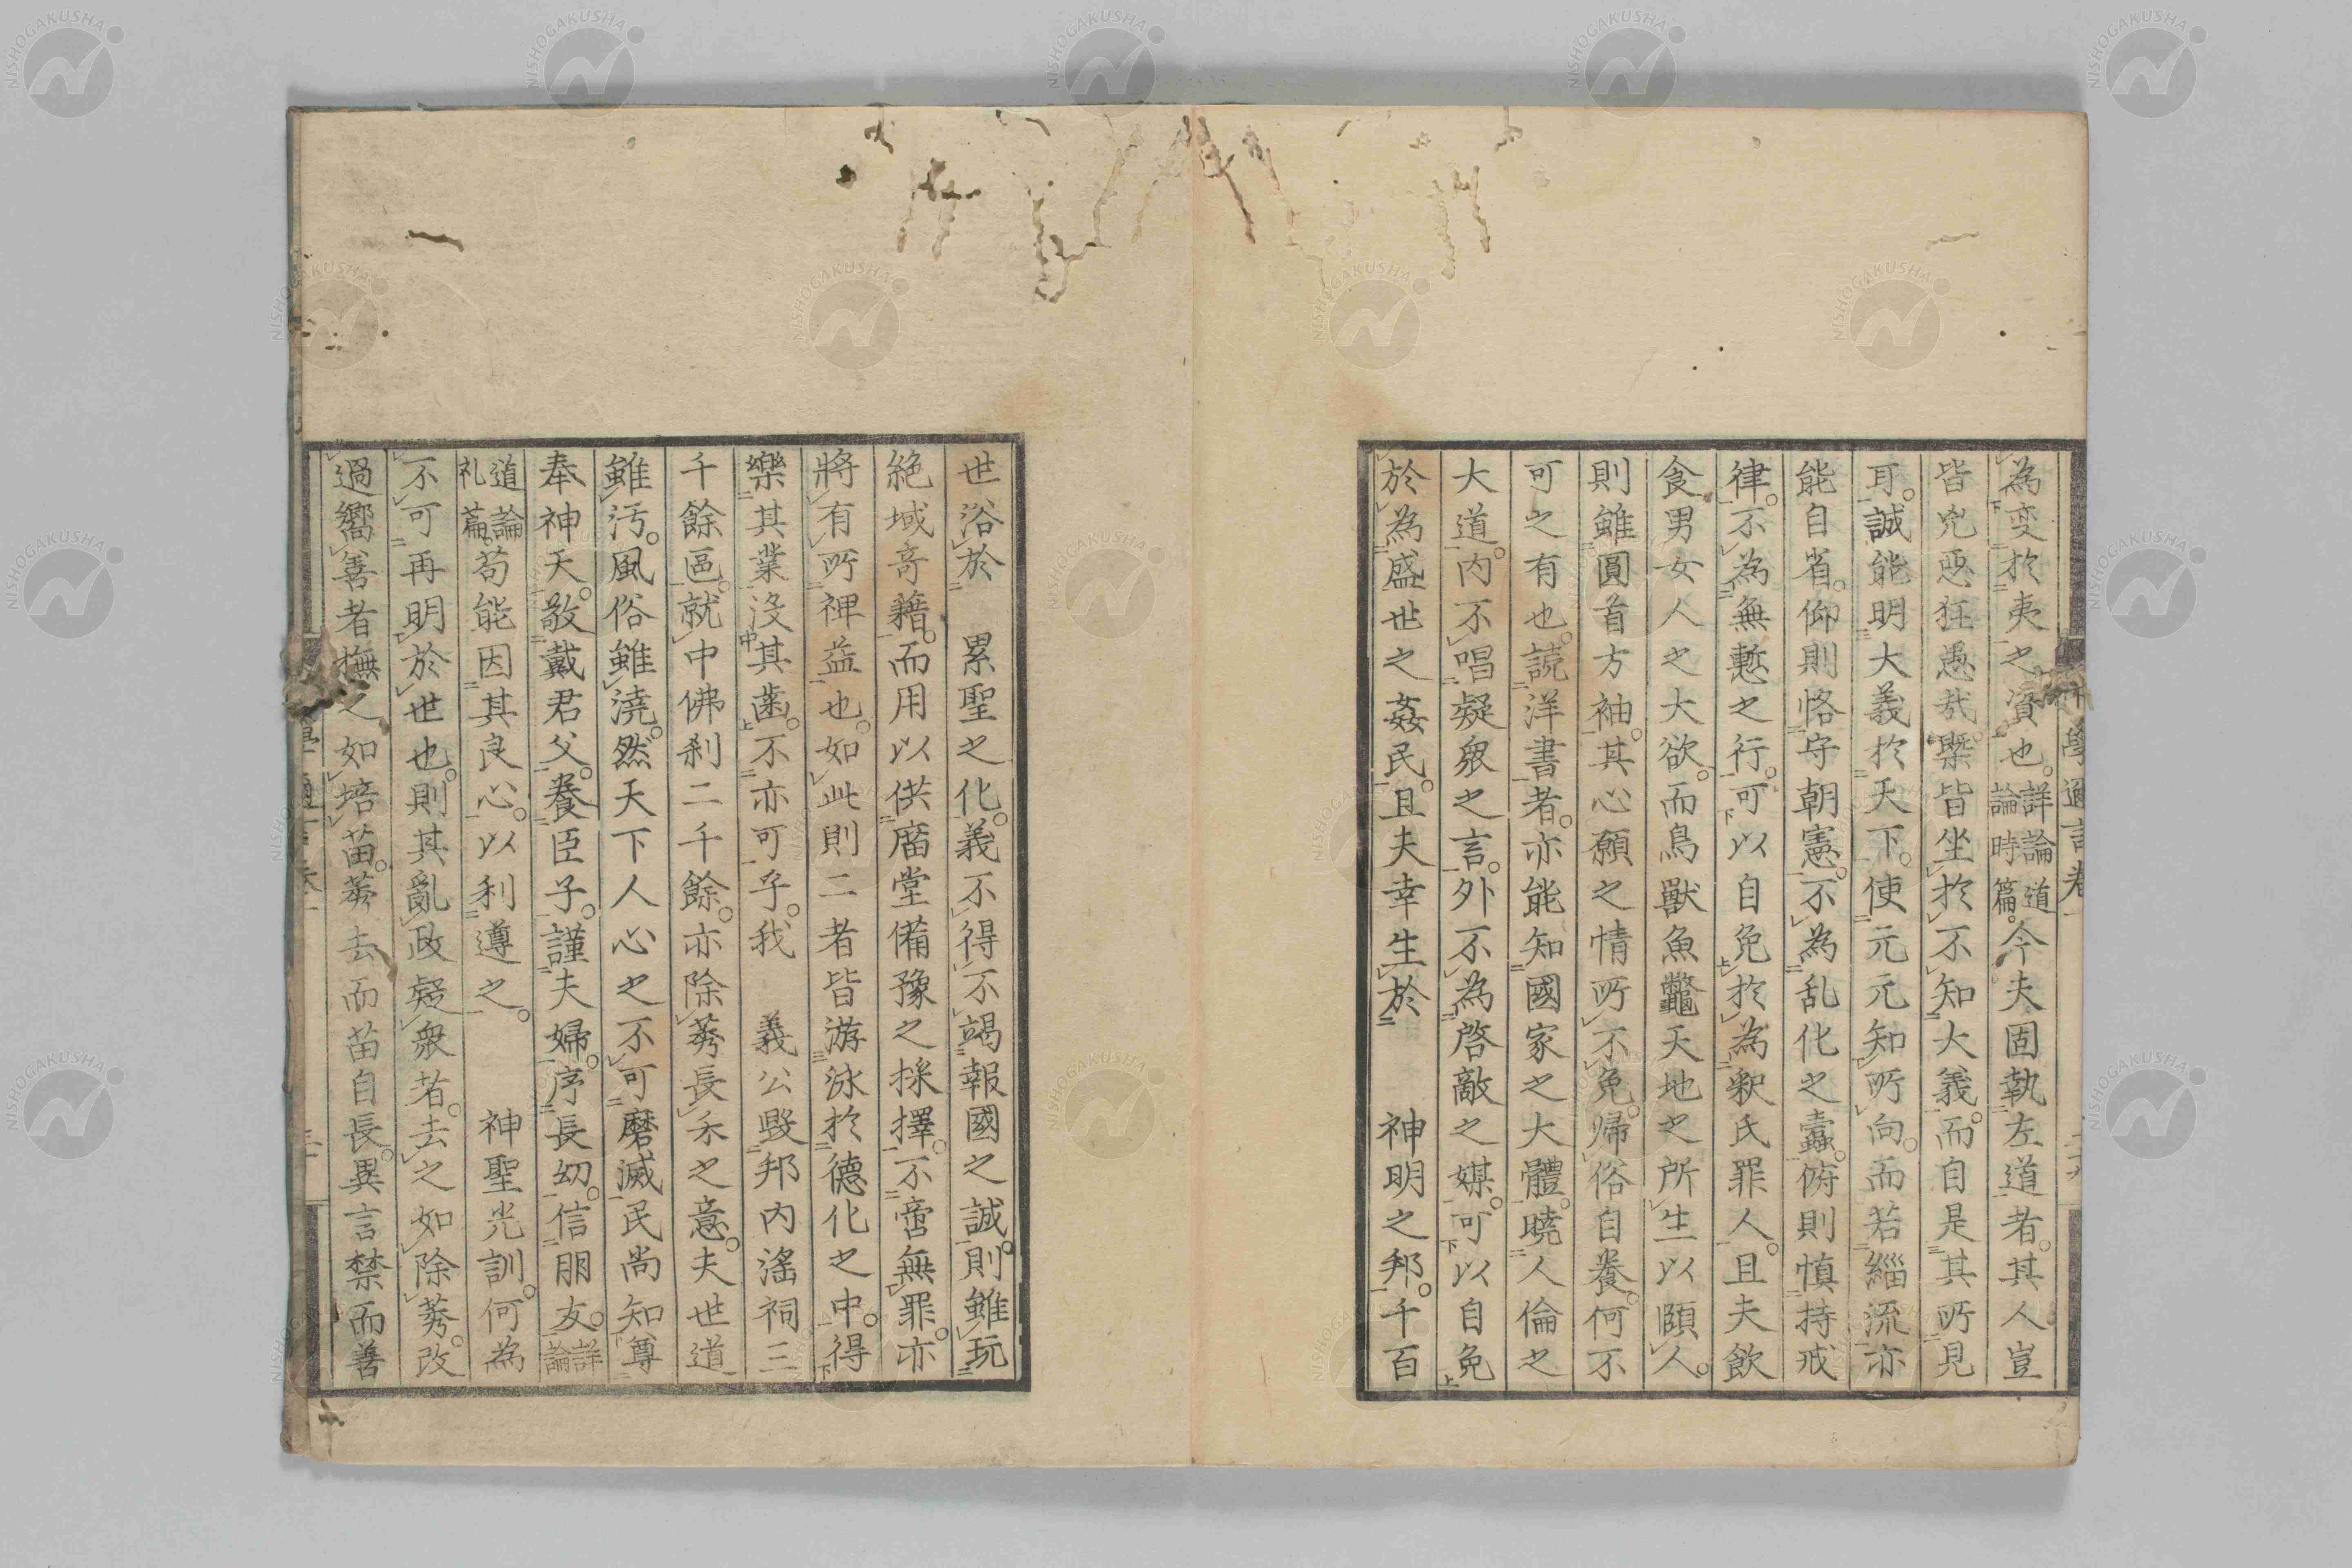 為変於夷之資也。詳論道論時篇。今夫固執左道者。其人豈
皆兇悪狂愚哉。槩皆坐於不知大義。而自是其所見
耳。誠能明大義於天下。使元元知所向。而若緇流亦
能自省。仰則恪守朝憲。不為乱化之蠹。俯則慎持戒
律。不為無慙之行。可以自免於為釈氏罪人。且夫飲
食男女人之大欲。而鳥獣魚鼈天地之所生以頤人。
則雖圓首方袖。其心願之情所不免。帰俗自養。何不
可之有也。読洋書者。亦能知國家之大體。曉人倫之
大道。内不唱疑衆之言。外不為啓敵之媒。可以自免
於為盛世之姦民。且夫幸生於 神明之邦。千百
世浴於 累聖之化。義不得不竭報國之誠。則雖玩
絶域奇籍。而用以供廟堂備豫之採擇。不啻無罪。亦
將有所裨益也。如此則二者皆游泳於德化之中。得
樂其業没其齒。不亦可乎。我 義公毀邦内滛祠三
千餘區。就中佛刹二千餘。亦除莠長禾之意。夫世道
雖汚。風俗雖澆。然天下人心之不可磨滅民尚知尊
奉神天。敬戴君父。養臣子。謹夫婦。序長幼。信朋友。詳論
道論礼篇。苟能因其良心。以利導之。 神聖光訓。何為
不可再明於世也。則其亂政疑衆者。去之如除莠。改
過嚮善者撫之如培苗。莠去而苗自長。異言禁而善
學通言巻